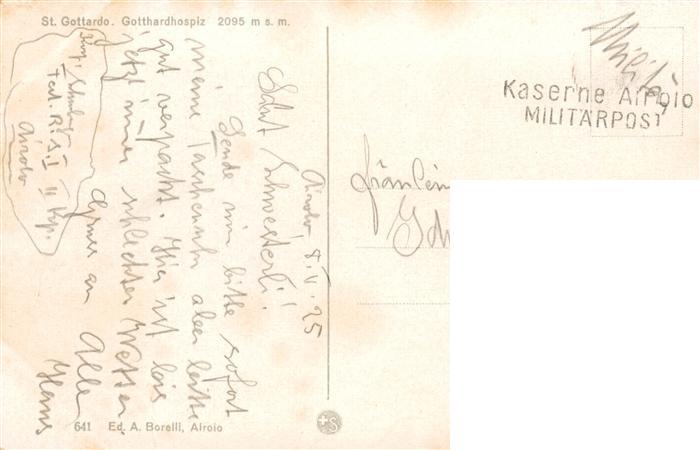 St. Gottardo. Gotthardhospiz 2095 m s. m.
Militär
Kaserne Airolo
MILITÄRPOST
Airolo, 8. V. 25
Salut Schwesterli!
Sende mir bitte sofort
meine Taschenuhr aber bitte
gut verpackt. Hier ist bis
jetzt immer schlechtes Wetter.
Gruss an Alle
Hans
II Kp.
Airolo
Fräulein
641 Ed. A. Borelli, Airolo
S